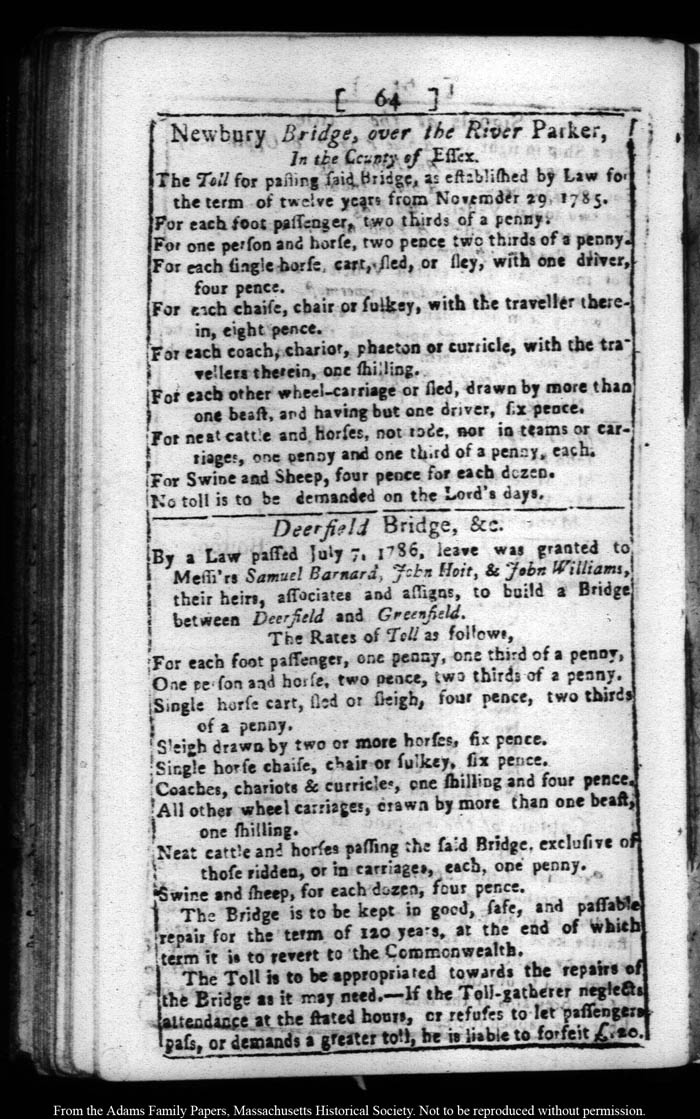 [ 64 ]
Newbury Bridge, over the River Parker,
In the County of Eſſex.
The Toll for paſſing ſaid Bridge, as eſtabliſhed by Law for
the term of twelve years from Novemder 29, 1785.
For each foot paſſenger, two thirds of a penny.
For one perſon and horſe, two pence two thirds of a penny.
For each ſingle horſe, cart, ſled, or ſley, with one driver,
four pence.
For each chaiſe, chair or ſulkey, with the traveller there-
in, eight pence.
For each coach, chariot, phaeton or curricle, with the tra-
vellers therein, one ſhilling.
For each other wheel-carriage or ſled, drawn by more than
one beaſt, and having but one driver, ſix pence.
For neat cattle and horſes, not rode, nor in teams or car-
riages, one penny and one third of a penny, each.
For Swine and Sheep, four pence for each dozen.
No toll is to be demanded on the Lord's days.
Deerfield Bridge, &c.
By a Law paſſed July 7, 1786, leave was granted to
Meſſi'rs Samuel Barnard, John Hoit, & John Williams,
their heirs, aſſociates and aſſigns, to build a Bridge
between Deerfield and Greenfield.
The Rates of Toll as follows,
For each foot paſſenger, one penny, one third of a penny,
One perſon and horſe, two pence, two thirds of a penny.
Single horſe cart, ſled or ſleigh, four pence, two thirds
of a penny.
Sleigh drawn by two or more horſes, ſix pence.
Single horſe chaiſe, chair or ſulkey, ſix pence.
Coaches, chariots & curricles, one ſhilling and four pence.
All other wheel carriages, drawn by more than one beaſt,
one ſhilling.
Neat cattle and horſes paſſing the ſaid Bridge, excluſive of
thoſe ridden, or in carriages, each, one penny.
Swine and ſheep, for each dozen, four pence.
The Bridge is to be kept in good, ſafe, and paſſable
repair for the term of 120 years, at the end of which
term it is to revert to the Commonwealth.
The Toll is to be appropriated towards the repairs of
the Bridge as it may need.—If the Toll-gatherer neglects
attendance at the ſtated hours, or refuſes to let paſſengers
paſs, or demands a greater toll, he is liable to forfeit £.20.
From the Adams Family Papers, Massachusetts Historical Society. Not to be reproduced without permission.